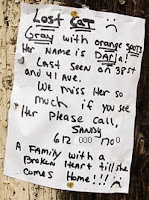 Lost Cat
Gray with orange spots
Her name is DARla!
Last seen on 38st
and 41 Ave.
We miss Her so
much if you see
Her please call,
SANDY
612 000 1700
A Family with a
Broken Heart till she
comes Home!!!